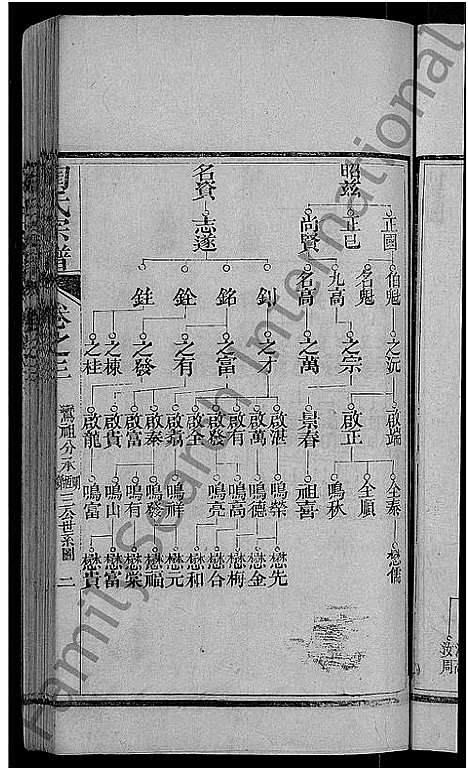 昭兹
名資
正國
正巳
尚賢
志遂
伯魁
名魁
九高
名高
釗
銘
銓
鉒
之沅
之宗
之萬
之才
之富
之有
之發
之棟
之桂
啟端
啟正
景春
啟湛
啟萬
啟有
啟發
啟全
啟泰
啟富
啟貴
啟龍
全泰
全順
鳴秋
祖喜
鳴榮
鳴德
鳴高
鳴亮
鳴祥
鳴發
鳴有
鳴山
鳴富
懋儒
懋先
懋金
懋梅
懋合
懋和
懋元
懋福
懋棠
懋富
懋貴
氏宗譜
卷之三
祖分承
三公世系圖
二
汝周
FamilySearch International